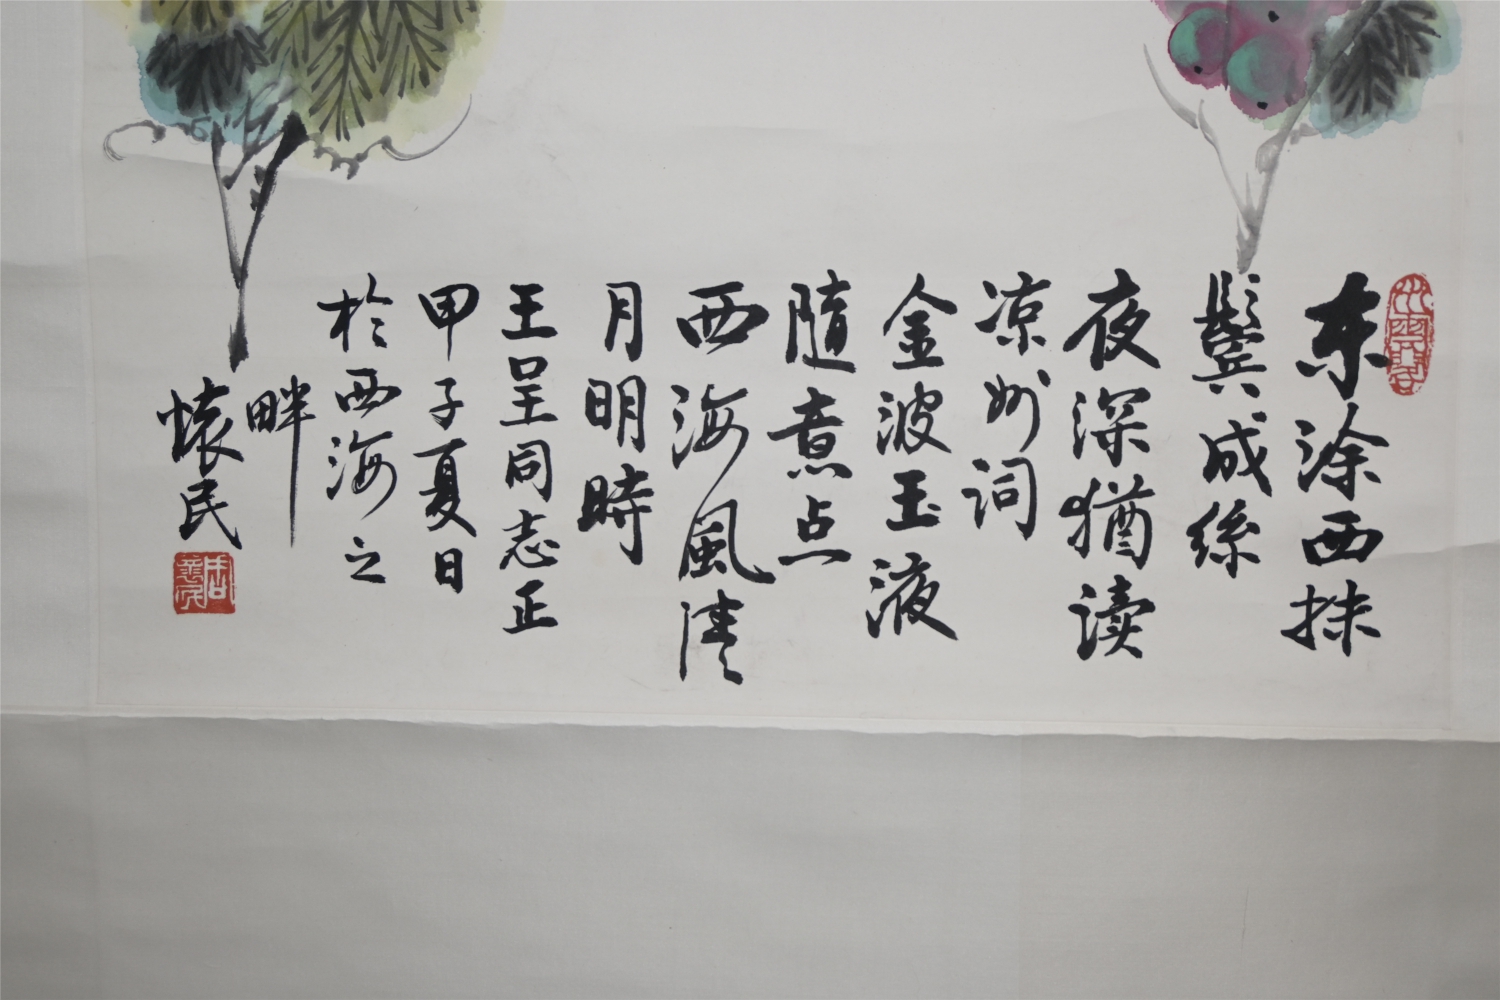 东涂西抹
鬓成絲
夜深猶读
凉州词
金波玉液
隨意点
西海風清
月明時
王呈同志正
甲子夏日
於西海之
畔
懷民